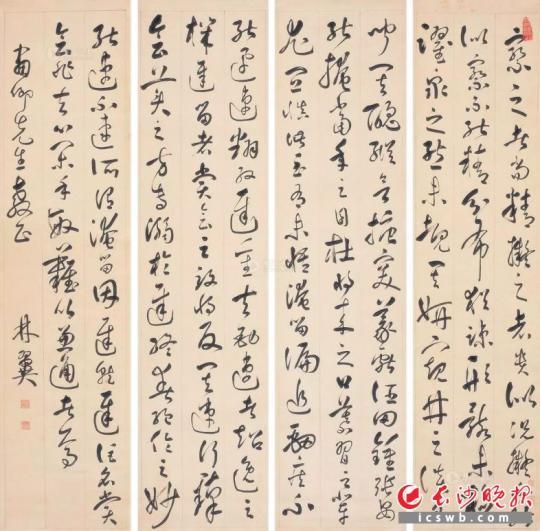 察之者尚精擬之者貴似況擬
似察不能精分布猶疏形骸未
躍泉之態未覩其妍窺井之談
聞其醜縱欲搪突羲獻誣罔鍾張安
能掩當年之目杜將來之口慕習之輩
尤宜慎諸至有未悟淹留偏追勁疾不
能迅速翻效遲重夫勁速者超逸之
機遲留者賞會之致將反其速行臻
會美之方專溺於遲終爽絕倫之妙
能速不速所謂淹留因遲就遲詎名賞
會非夫心閑手敏難以兼通者焉
仰先生教正
林翼
长沙晚报
icswb.com